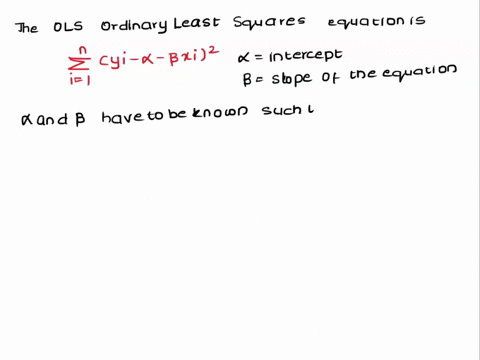 The OLS Ordinary Least Squares equation is
n
∑ (yi - α - βxi)² α = intercept
i=1 β = slope of the equation
α and β have to be known such